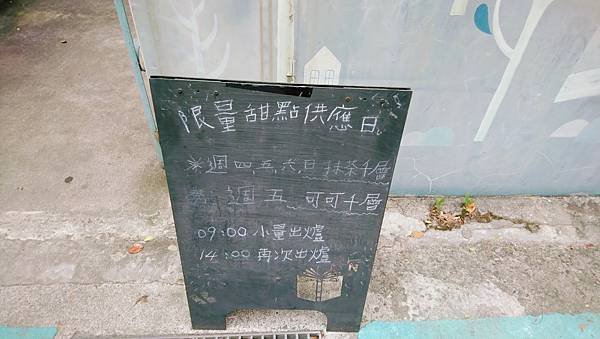 限量甜點供應日
※週四、五、六、日 抹茶千層
※ 週五 可可千層
09:00 小量出爐
14:00 再次出爐